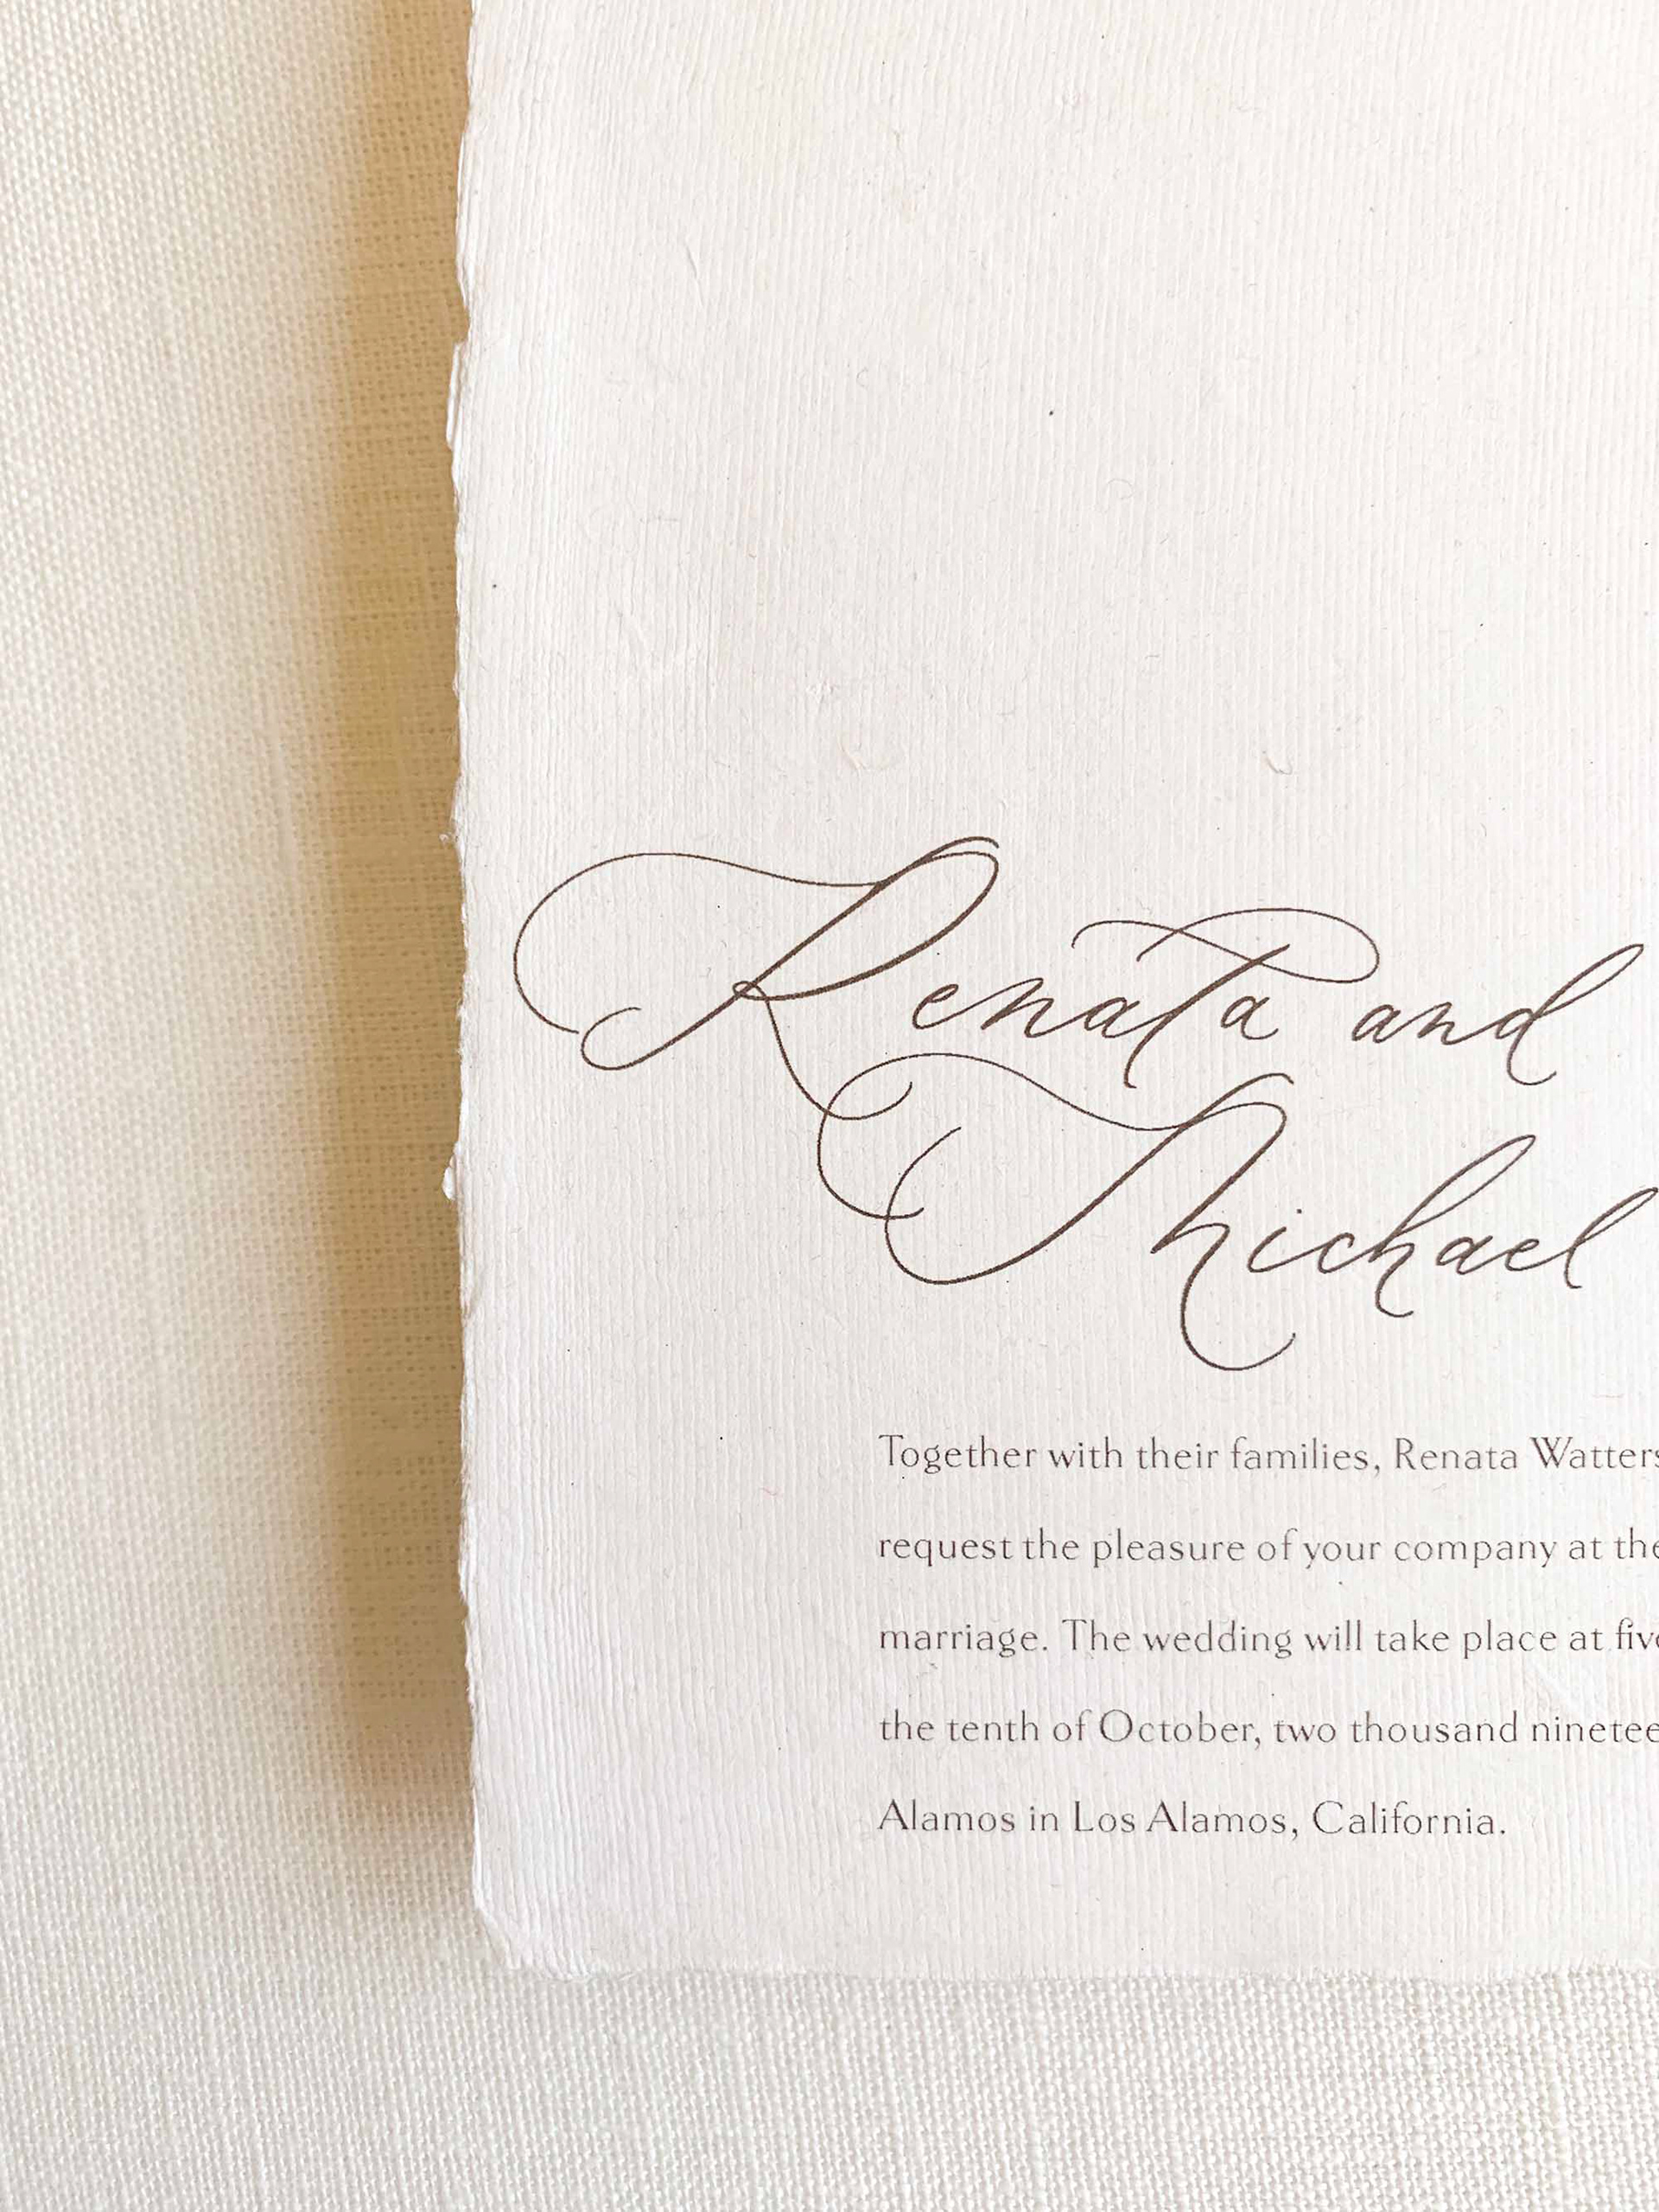 Renata and
Michael
Together with their families, Renata Watters
request the pleasure of your company at the
marriage. The wedding will take place at five
the tenth of October, two thousand ninetee
Alamos in Los Alamos, California.